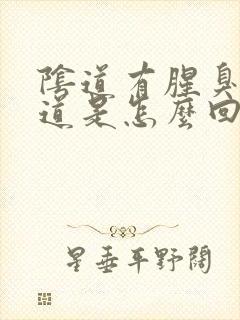 陰道有腥臭
道是怎麼回
星垂平野闊